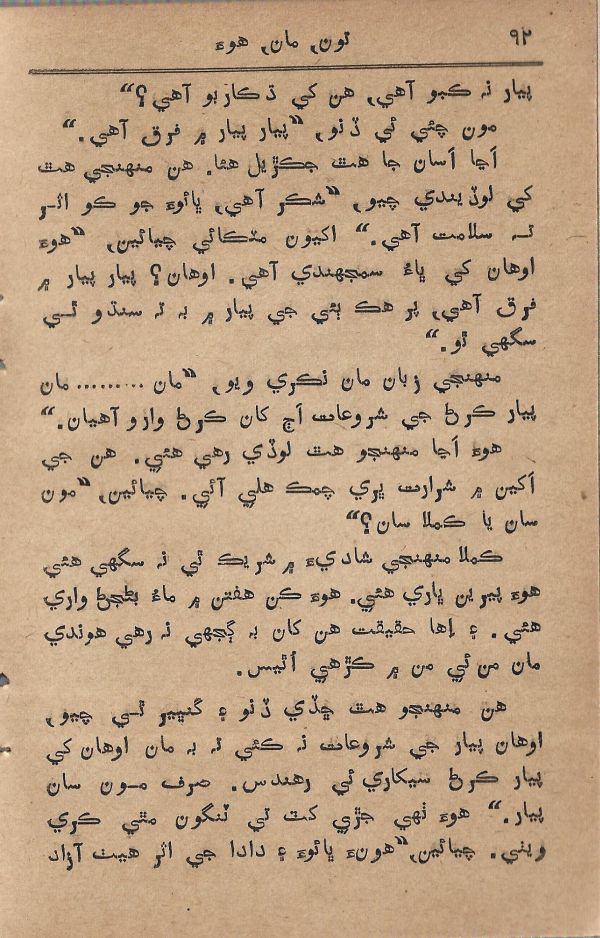 ۹۲ تون, مان, هوءَ
پيار نہ ڪيو آهي, هن کي ڌڪاريو آهي؟“
مون چئي ئي ڏنو, “پيار پيار ۾ فرق آهي.“
اَڃا اَسان جا هٿ جڪڙيل هئا. هن منهنجي هٿ
کي لوڏيندي چيو, “شڪر آهي, ڀائوءَ جو ڪو اثر
تہ سلامت آهي.“ اکيون مٽڪائي چيائين, “هوءَ
اوهان کي ڀاءُ سمجهندي آهي. اوهان؟ پيار پيار ۾
فرق آهي, پر هڪ ٻئي جي پيار ۾ بہ تہ سنڌو ٿي
سگهي ٿو.“
منهنجي زبان مان نڪري ويو, “مان ......... مان
پيار ڪرڻ جي شروعات اَڄ کان ڪرڻ وارو آهيان.“
هوءَ اَڃا منهنجو هٿ لوڏي رهي هئي. هن جي
اَکين ۾ شرارت ڀري چمڪ هلي آئي. چيائين, “مون
سان يا ڪملا سان؟“
ڪملا منهنجي شاديءَ ۾ شريڪ ٿي نہ سگهي هئي
هوءَ پيرين ڀاري هئي. هوءَ ڪن هفتن ۾ ماءُ بڻجڻ واري
هئي. ۽ اِها حقيقت هن کان بہ ڳجهي نہ رهي هوندي
مان من ئي من ۾ ڪڙهي اُٿيس.
هن منهنجو هٿ ڇڏي ڏنو ۽ گنڀير ٿي چيو,
اوهان پيار جي شروعات نہ ڪئي تہ بہ مان اوهان کي
پيار ڪرڻ سيکاري ئي رهندس. صرف مون سان
پيار.“ هوءَ ٺهي جڙي کٽ تي ٽنگون مٿي ڪري
ويٺي. چيائين,“هونءَ ڀائوءَ ۽ دادا جي اثر هيٺ آزاد